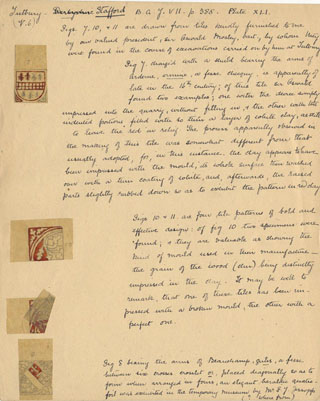 Tutbury
V.1
Derbyshire Stafford D.A.J. VII. p 388. Plate XLI.
Figs 7, 10, & 11 are drawn from tiles kindly furnished to me
by our valued president, Sir Oswald Mosley, bart, by whom they
were found in the course of excavations carried on by him at Tutbury
Fig 7, charged with a shield bearing the arms of
ardens, ermine, a fesse chequy, is apparently of
late in the 15th century; of this tile Sir Oswald
found two examples; one with the device simply
impressed into the quarry, without filling in, & the other with the
indented portions filled with so thin a layer of white clay, as still
to leave the red in relief. The process apparently observed in
the making of this tile was somewhat different from that
usually adopted, for, in this instance, the clay appears to have
been impressed with the mould, its whole surface then washed
over with a thin coating of white, and, afterwards, the raised
parts slightly rubbed down so as to exhibit the pattern in red clay
Figs 10 & 11 are four tile patterns of bold and
effective design; of fig 10 two specimens were
found, & they are valuable as showing the
kind of mould used in their manufacture —
the grain of the wood being distinctly
impressed in the clay. It may be well to
remark, that one of these tiles has been im-
pressed with a broken mould, the other with a
perfect one.
Fig 8 bearing the arms of Beauchamp, gules, a fesse
between six crosses crosslet or, placed diagonally so as to
form when arranged in fours, an elegant heraldic quatre-
foil was exhibited in the temporary museum by Mr
(where from)